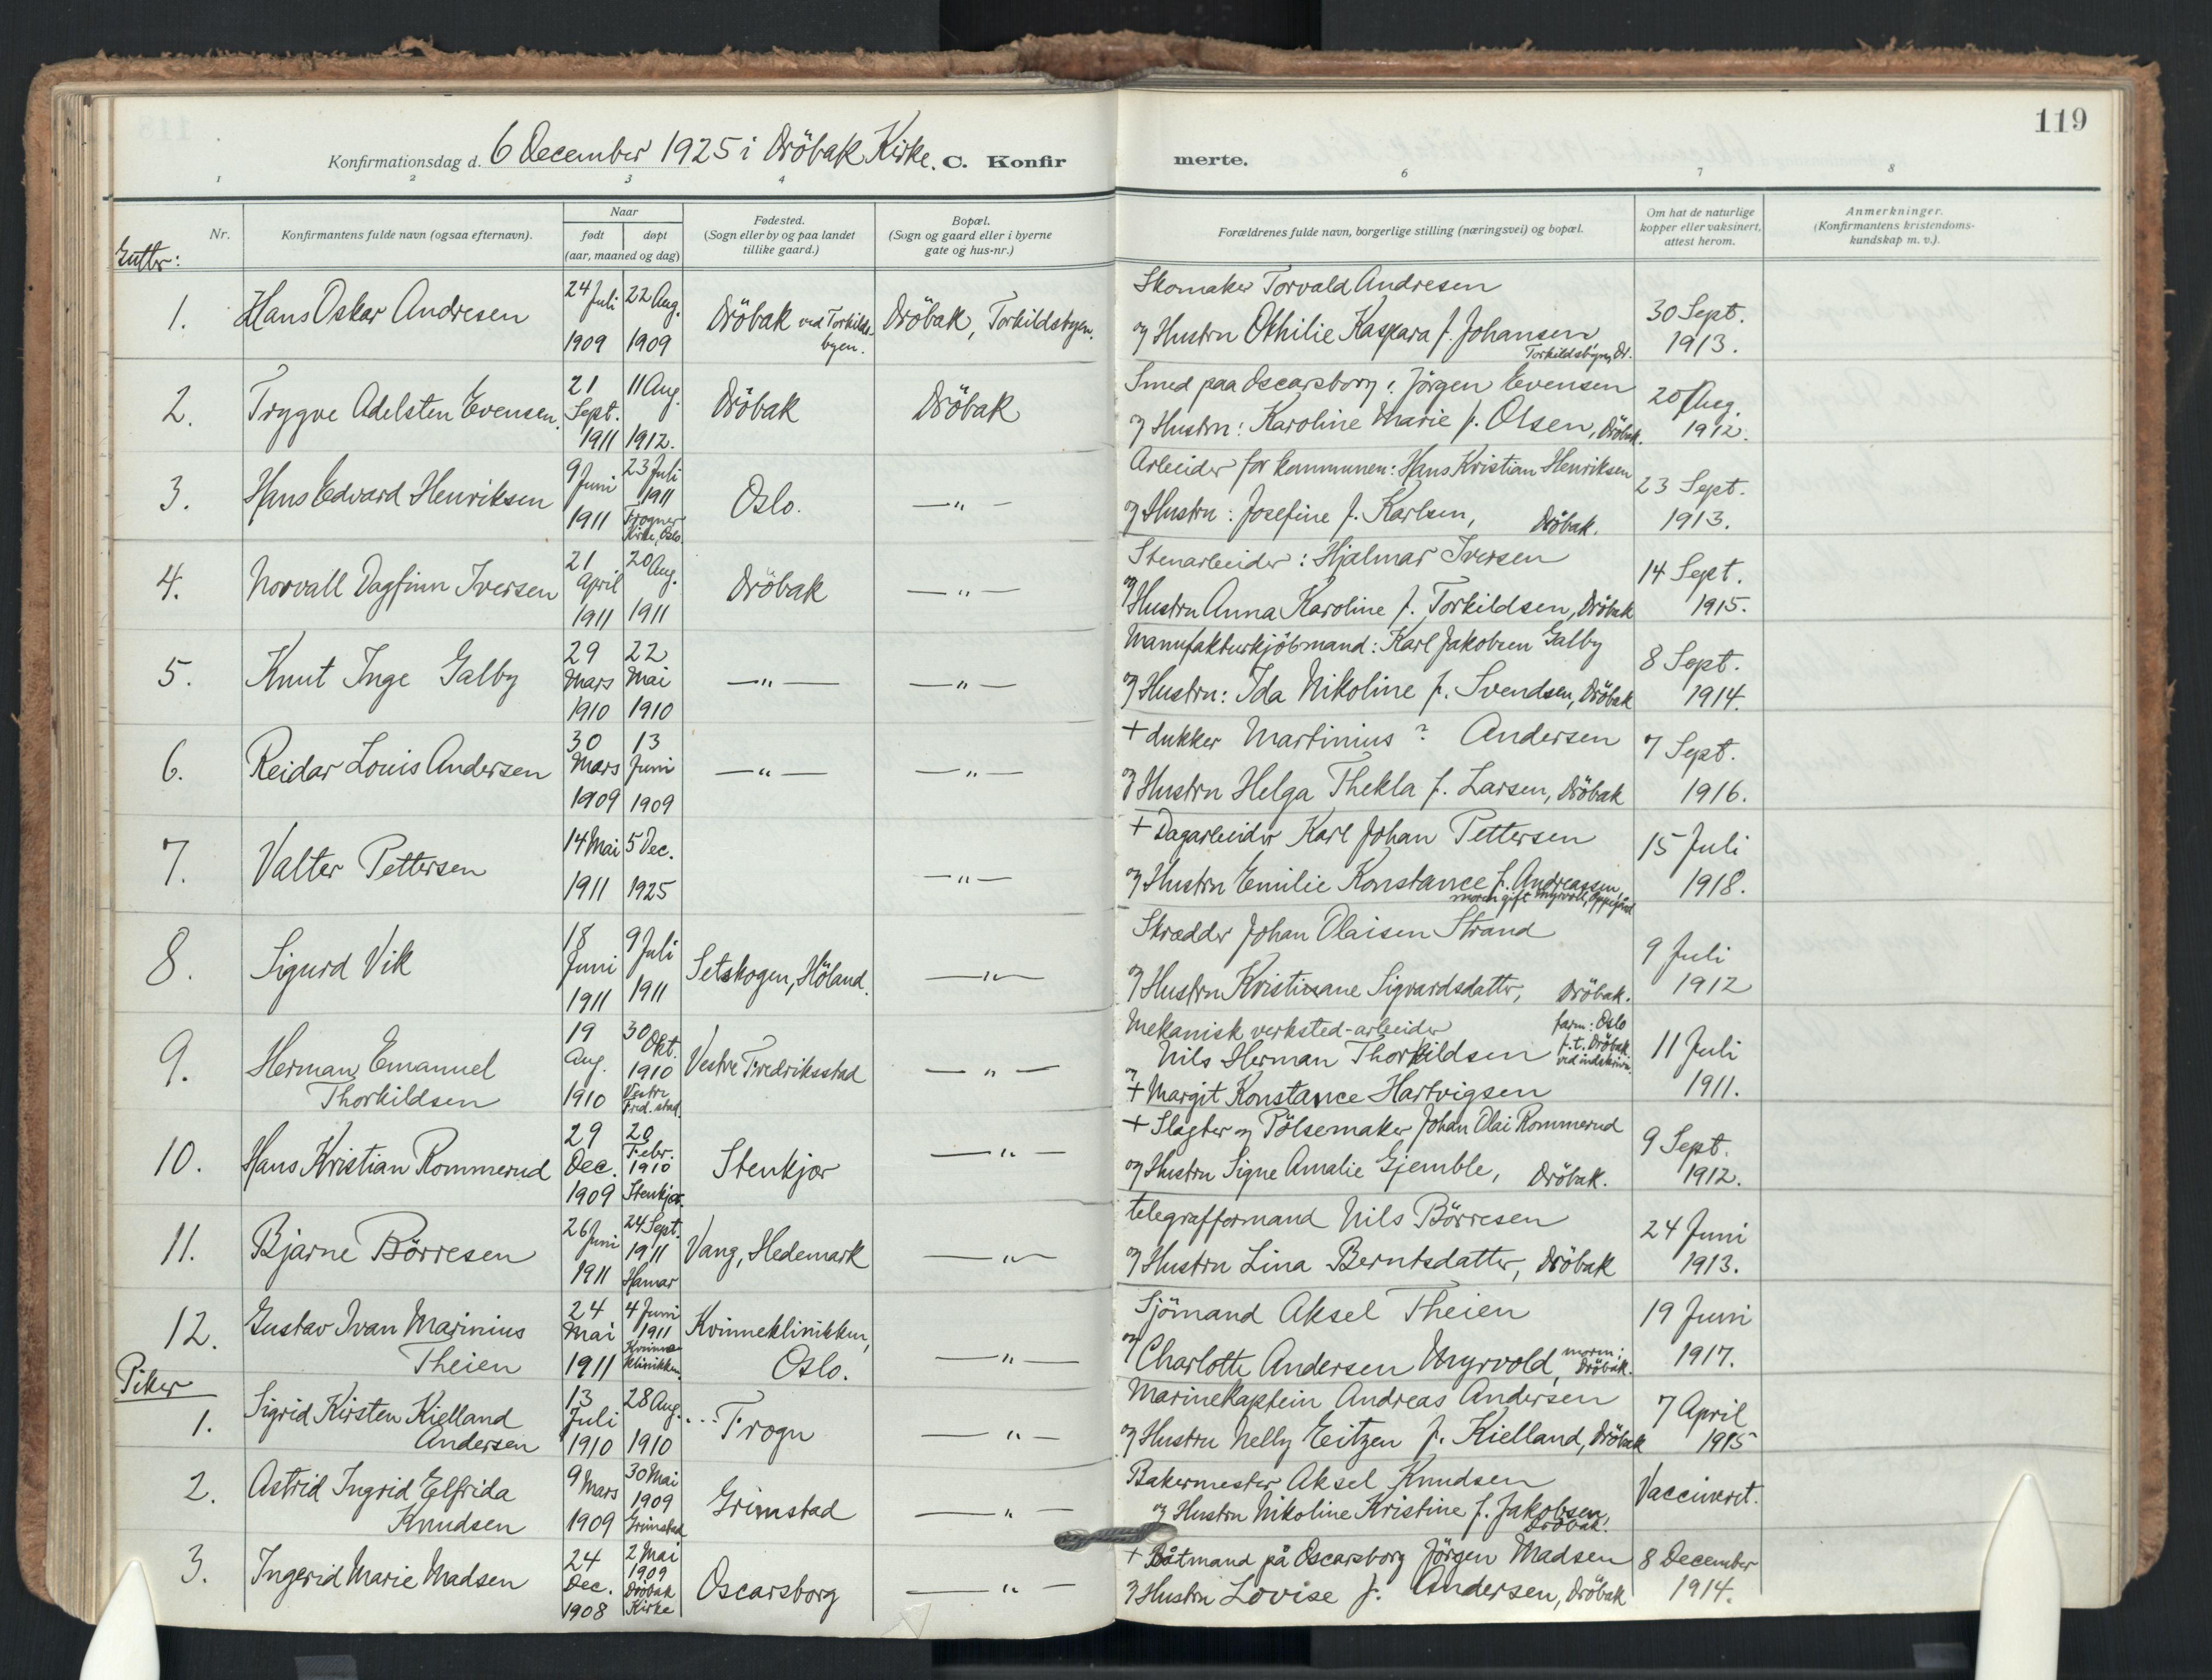 119
Konfirmationsdag d. 6 December 1925 i Dröbak Kirke. C. Konfirmerte.
1 2 3 4 6 7 8
Nr.
Konfirmantens fulde navn (ogsaa efternavn).
Naar
født døpt
(aar, maaned og dag)
Fødested.
(Sogn eller by og paa landet
tillike gaard.)
Bopæl.
(Sogn og gaard eller i byerne
gate og hus-nr.)
Forældrenes fulde navn, borgerlige stilling (næringsvei) og bopæl.
Om hat de naturlige
kopper eller vaksinert,
attest herom.
Anmerkninger.
(Konfirmantens kristendoms-
kundskap m. v.).
Gutter:
1. Hans Oskar Andresen
24 Juli 1909
22 Aug. 1909
Dröbak ved Torkilds-
byen.
Dröbak, Torkildsbyen.
Skomaker Torvald Andresen
og Hustru Othilie Kaspara f. Johansen
Torkildsbyen, Dr.
30 Sept.
1913.
2. Trygve Adelsten Evensen.
21 Sept. 1911
11 Aug. 1912.
Dröbak
Dröbak
Smed paa Oscarsborg: Jörgen Evensen
og Hustru: Karoline Marie f. Olsen, Dröbak.
20 Aug.
1912.
3. Hans Edvard Henriksen
9 Juni 1911
23 Juli 1911
Frogner
Kirke, Oslo
Oslo.
—"—
Arbeider for kommunen: Hans Kristian Henriksen
og Hustru: Josefine f. Karlsen, Dröbak.
23 Sept.
1913.
4. Norvall Dagfinn Iversen
21 April 1911
20 Aug. 1911
Dröbak
—"—
Stenarbeider: Hjalmar Iversen
og Hustru Anna Karoline f. Torkildsen, Dröbak
14 Sept.
1915.
5. Knut Inge Galby
29 Mars 1910
22 Mai 1910
—"—
—"—
Manufakturkjöbmand: Karl Jakobsen Galby
og Hustru: Ida Nikoline f. Svendsen, Dröbak
8 Sept.
1914.
6. Reidar Louis Andersen
30 Mars 1909
13 Juni 1909
—"—
—"—
+ dukker Martinius ? Andersen
og Hustru Helga Thekla f. Larsen, Dröbak
7 Sept.
1916.
7. Valter Pettersen
14 Mai 1911
5 Dec. 1925
—"—
+ Dagarbeider Karl Johan Pettersen
og Hustru Emilie Konstance f. Andreassen,
moren gift Myrvoll, Oppegård
15 Juli
1918.
8. Sigurd Vik
18 Juni 1911
9 Juli 1911
Setskogen, Höland.
—"—
Skrædder Johan Olaisen Strand
og Hustru Kristiane Sigvardsdatter, Dröbak.
9 Juli
1912
9. Herman Emanuel
Thorkildsen
19 Aug. 1910
30 Okt. 1910
Vestre
Fred.stad.
Vestre Fredriksstad
—"—
Mekanisk verksted-arbeider
Nils Herman Thorkildsen
farm: Oslo
f.t. Dröbak
og
+ Margit Konstance Hartvigsen
11 Juli
1911.
10. Hans Kristian Rommerud
29 Dec. 1909
20 Febr. 1910
Stenkjær.
Stenkjær
—"—
+ Slagter og Pölsemaker Johan Olai Rommerud
og Hustru Signe Amalie Gjemble, Dröbak.
9 Sept.
1912.
11. Bjarne Börresen
26 Juni 1911
24 Sept. 1911
Hamar
Vang, Hedemark
—"—
telegrafformand Nils Börresen
og Hustru Lina Berntsdatter, Dröbak
24 Juni
1913.
12. Gustav Ivan Marinius
Theien
24 Mai 1911
4 Juni 1911
Kvinne-
klinikken.
Kvinneklinikken,
Oslo.
—"—
Sjömand Aksel Theien
og Charlotte Andersen Myrvold, morm: Dröbak.
19 Juni
1917.
Piker
1. Sigrid Kirsten Kielland
Andersen
13 Juli 1910
28 Aug. 1910
... Frogn
—"—
Marinekaptein Andreas Andersen
og Hustru Nelly Eitzen f. Kielland, Dröbak
7 April
1915
2. Astrid Ingrid Elfrida
Knudsen
9 Mars 1909
30 Mai 1909
Grimstad
Grimstad
—"—
Bakermester Aksel Knudsen
og Hustru Nikoline Kristine f. Jakobsen,
Dröbak.
Vaccineret.
3. Ingerid Marie Madsen
24 Dec. 1908
2 Mai 1909
Dröbak
Kirke
Oscarsborg
—"—
+ Båtmand på Oscarsborg Jörgen Madsen
og Hustru Lovise f. Andersen, Dröbak
8 December
1914.